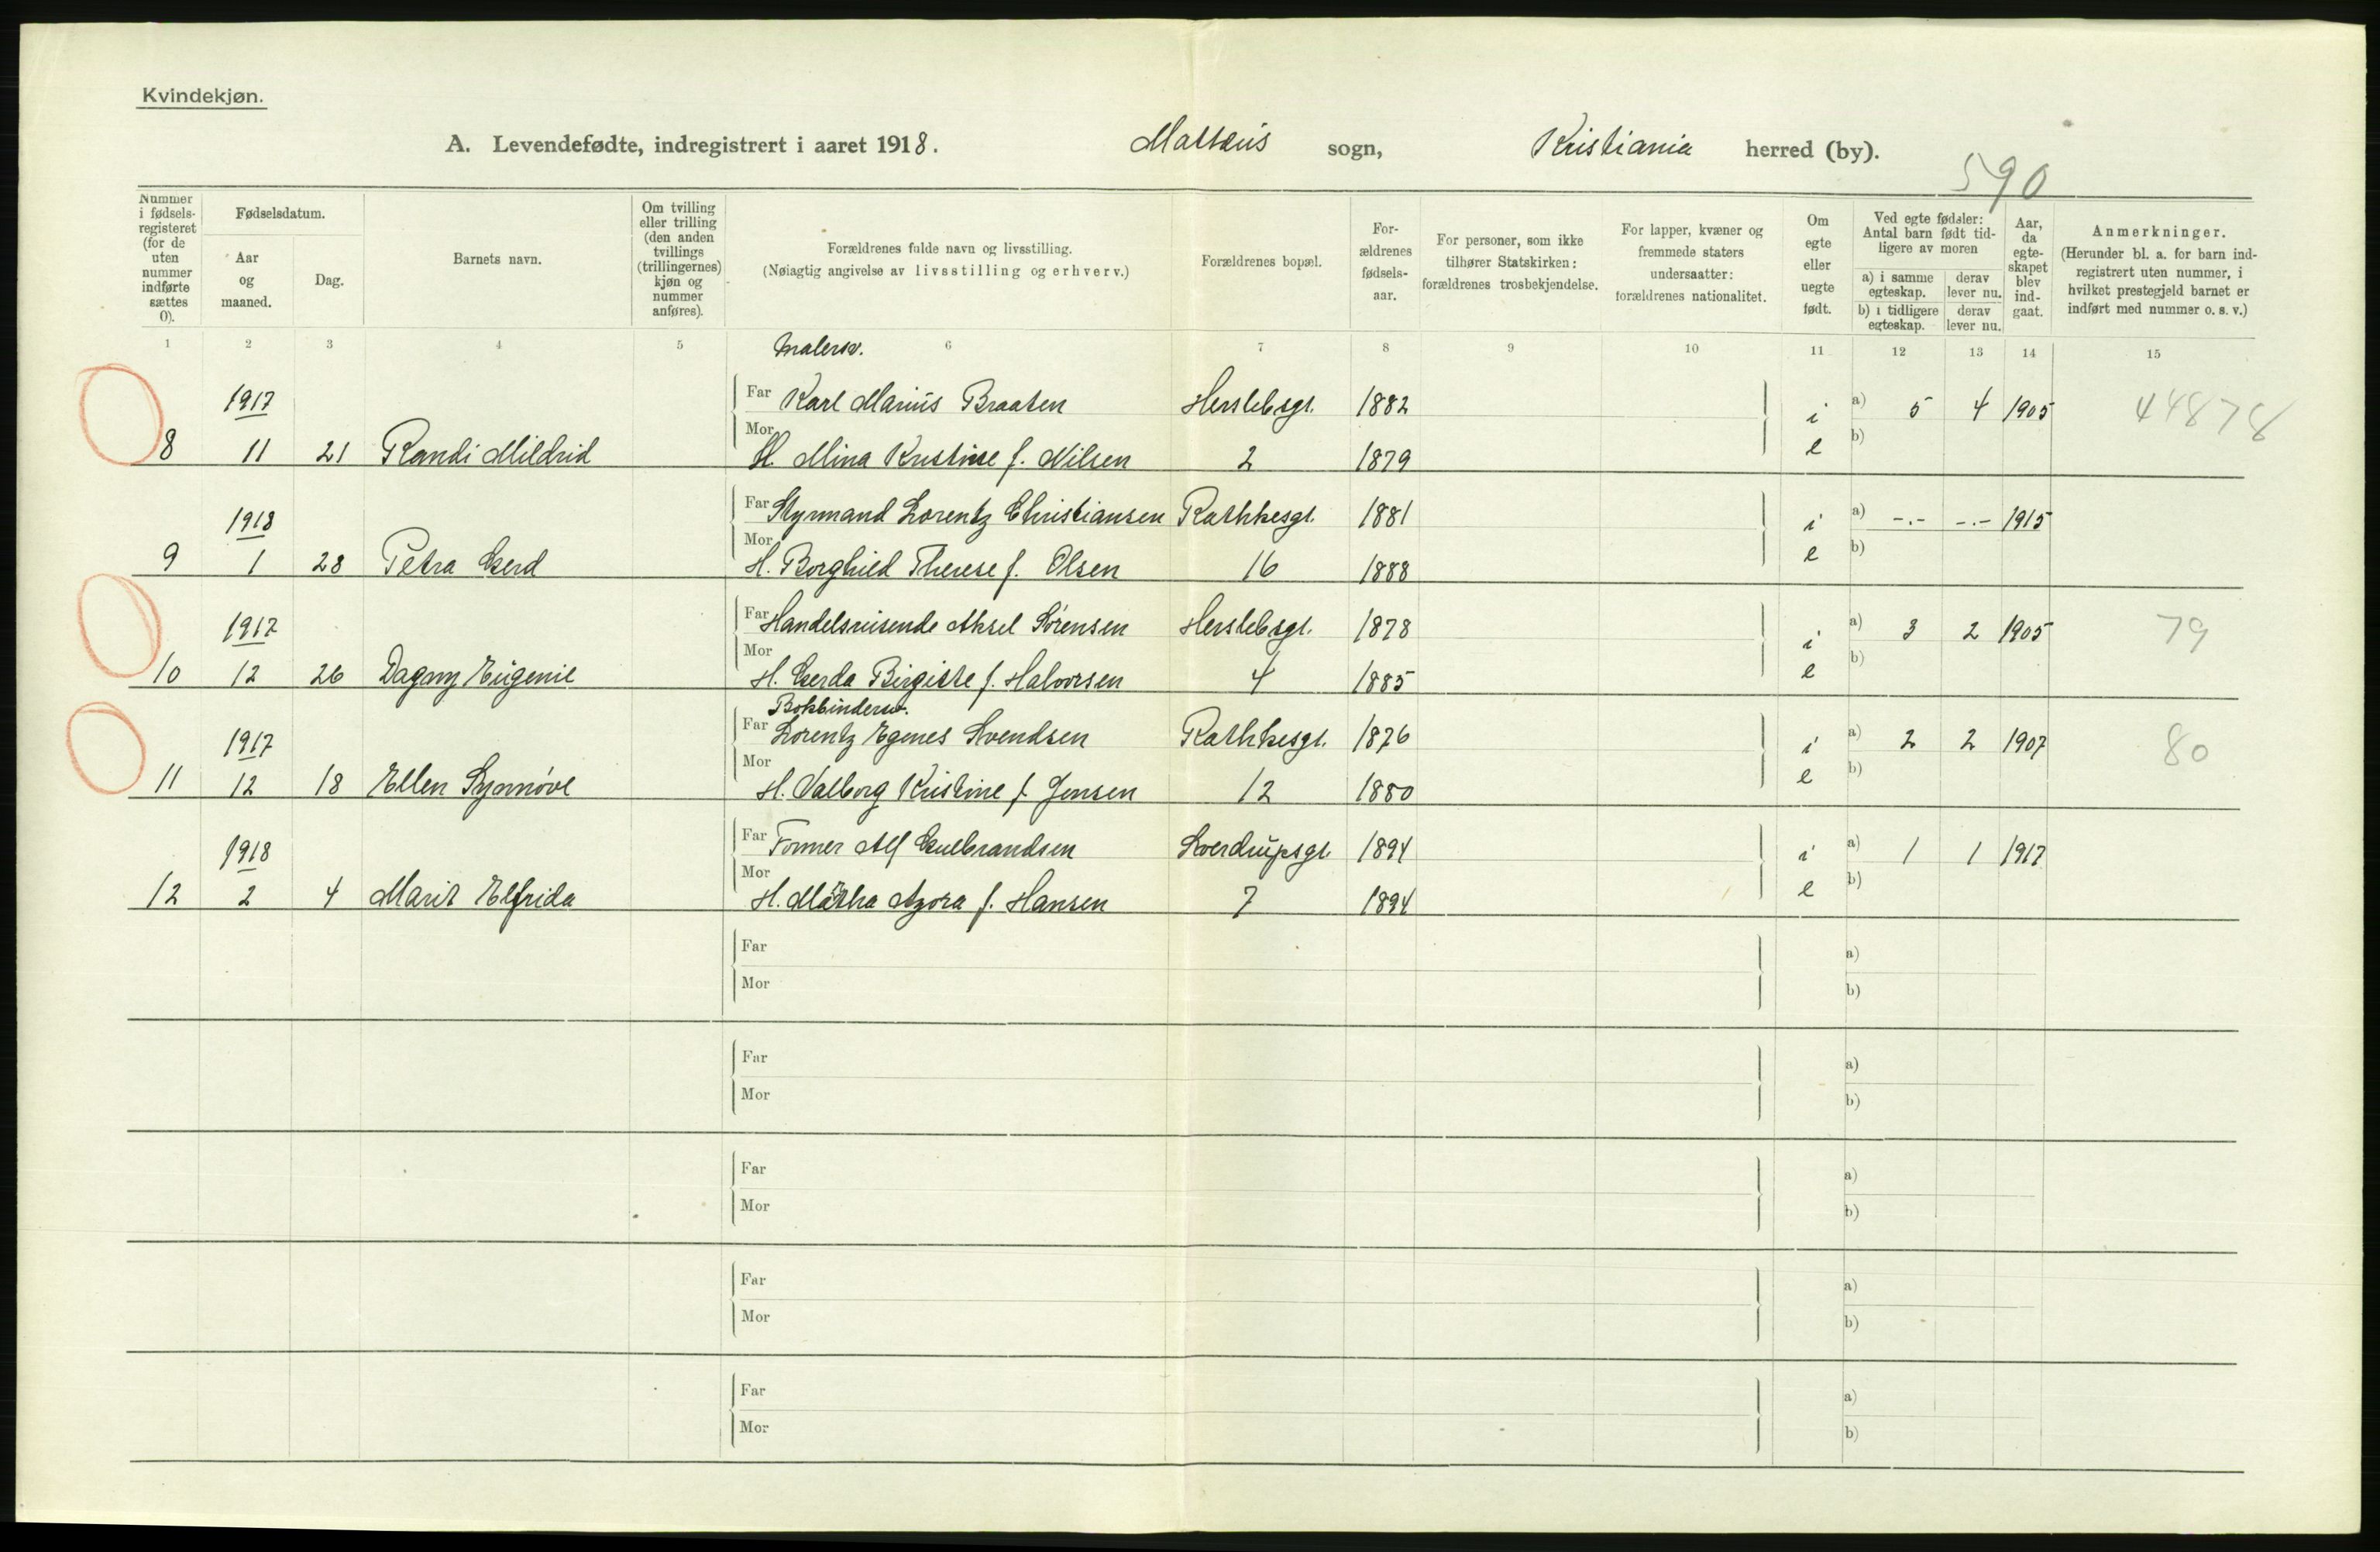 Kvindekjøn.
A. Levendefødte, indregistrert i aaret 1918. Mattæus sogn, Kristiania herred (by).
590
Nummer i fødsels-registeret (for de uten nummer indførte sættes 0).
Fødselsdatum.
Aar og maaned.
Dag.
Barnets navn.
Om tvilling eller trilling (den anden tvillings (trillingernes) kjøn og nummer anføres).
Forældrenes fulde navn og livsstilling.
(Nøiagtig angivelse av livsstilling og erhverv.)
Forældrenes bopæl.
For-ældrenes fødsels-aar.
For personer, som ikke tilhører Statskirken: forældrenes trosbekjendelse.
For lapper, kvæner og fremmede staters undersaatter: forældrenes nationalitet.
Om egte eller uegte født.
Ved egte fødsler: Antal barn født tid-ligere av moren
a) i samme egteskap.
derav lever nu.
b) i tidligere egteskap.
derav lever nu.
Aar, da egte-skapet blev ind-gaat.
Anmerkninger.
(Herunder bl. a. for barn ind-registrert uten nummer, i hvilket prestegjeld barnet er indført med nummer o. s. v.)
1 2 3 4 5 6 7 8 9 10 11 12 13 14 15
Malersv.
1917 Far Karl Marius Braaten Herslebsgt. 1882 i a) 5 4 1905 44878
8 11 21 Randi Mildrid Mor H. Mina Kristine f. Nilsen 2 1879 e b)
1918 Far Styrmand Lorentz Christiansen Rathkesgt. 1881 i a) -.- -.- 1915
9 1 28 Petra Gerd Mor H. Borghild Therese f. Olsen 16 1888 e b)
1917 Far Handelsreisende Aksel Sørensen Herslebsgt. 1878 i a) 3 2 1905 79
10 12 26 Dagny Eugenie Mor H. Gerda Birgitte f. Halvorsen 4 1885 e b)
Bokbindersv.
1917 Far Lorentz Egenes Svendsen Rathkesgt. 1876 i a) 2 2 1907 80
11 12 18 Ellen Synnøve Mor H. Valborg Kristine f. Jensen 12 1880 e b)
1918 Far Former Alf Gulbrandsen Sverdrupsgt. 1894 i a) 1 1 1917
12 2 4 Marit Elfrida Mor H. Märtha Azora f. Hansen 7 1894 e b)
Far a)
Mor b)
Far a)
Mor b)
Far a)
Mor b)
Far a)
Mor b)
Far a)
Mor b)